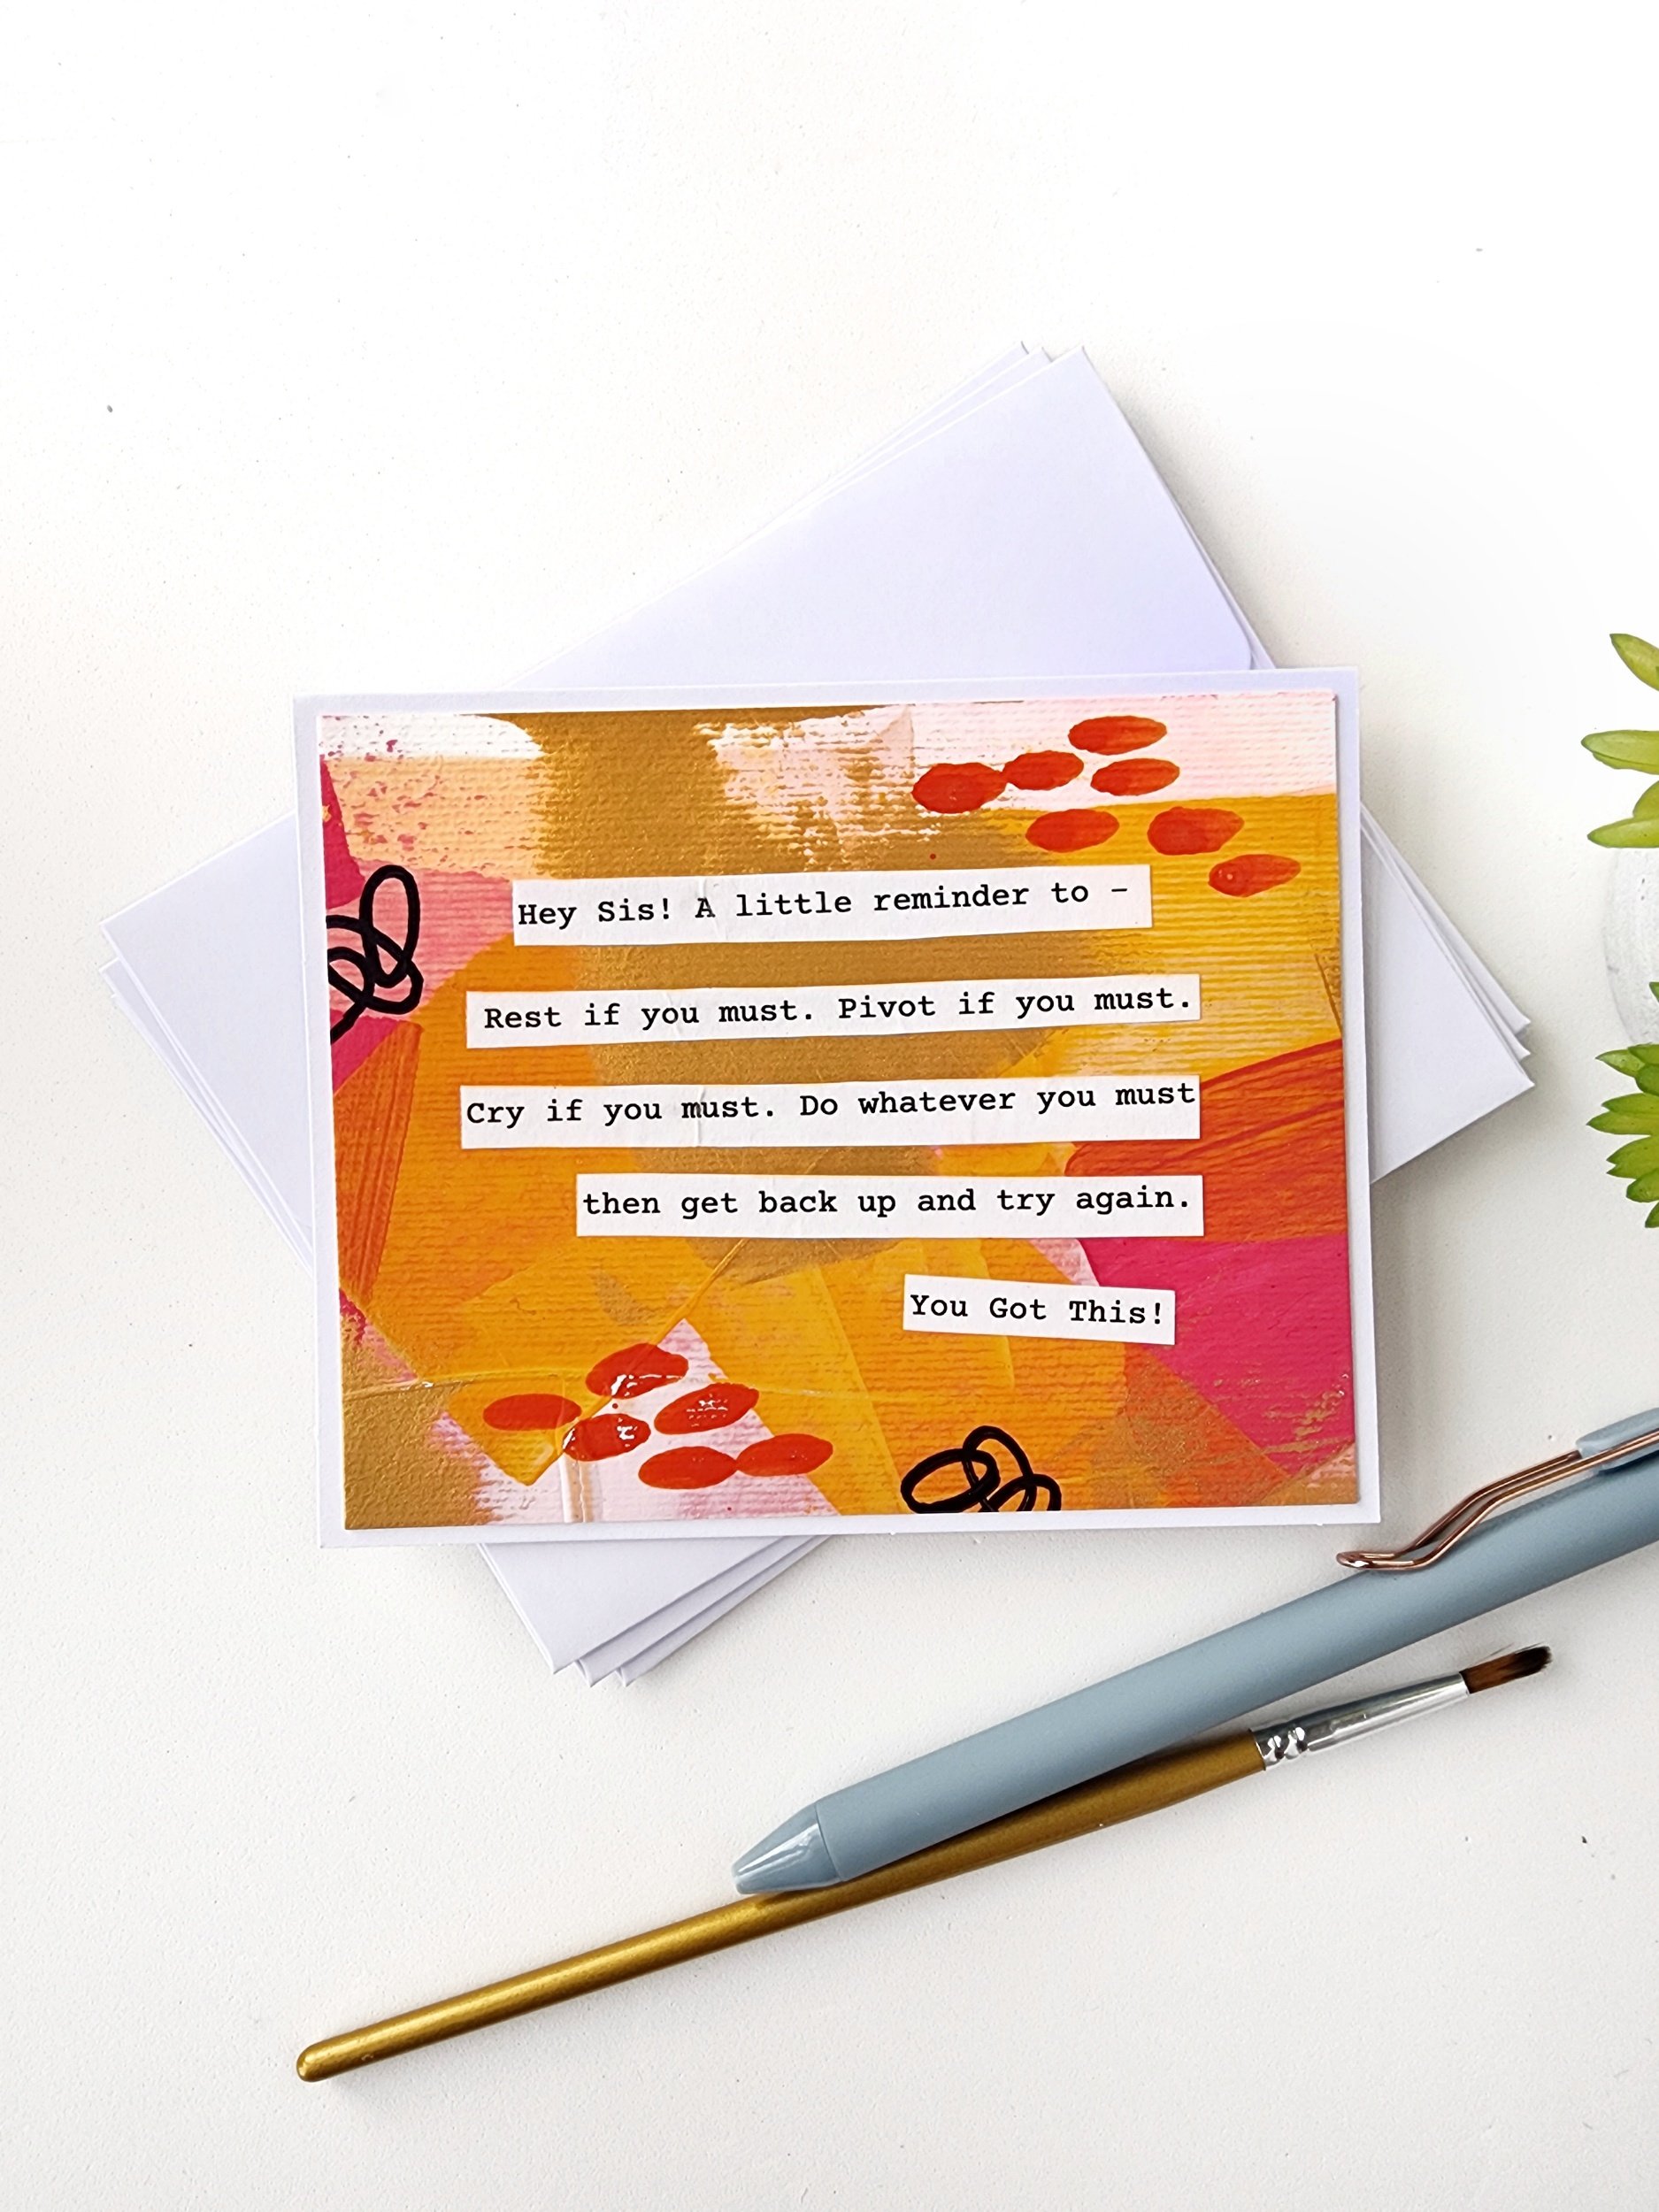 Hey Sis! A little reminder to -
Rest if you must. Pivot if you must.
Cry if you must. Do whatever you must
then get back up and try again.
You Got This!